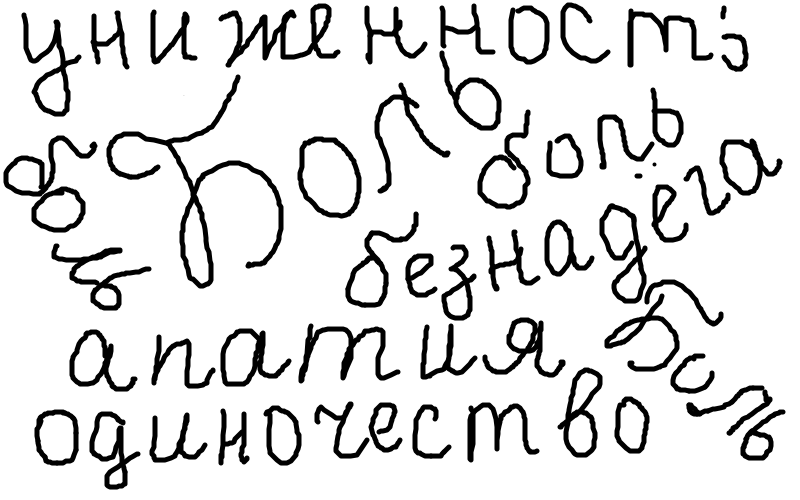 униженность
боль
Боль
боль
безнадега
апатия
боль
одиночество